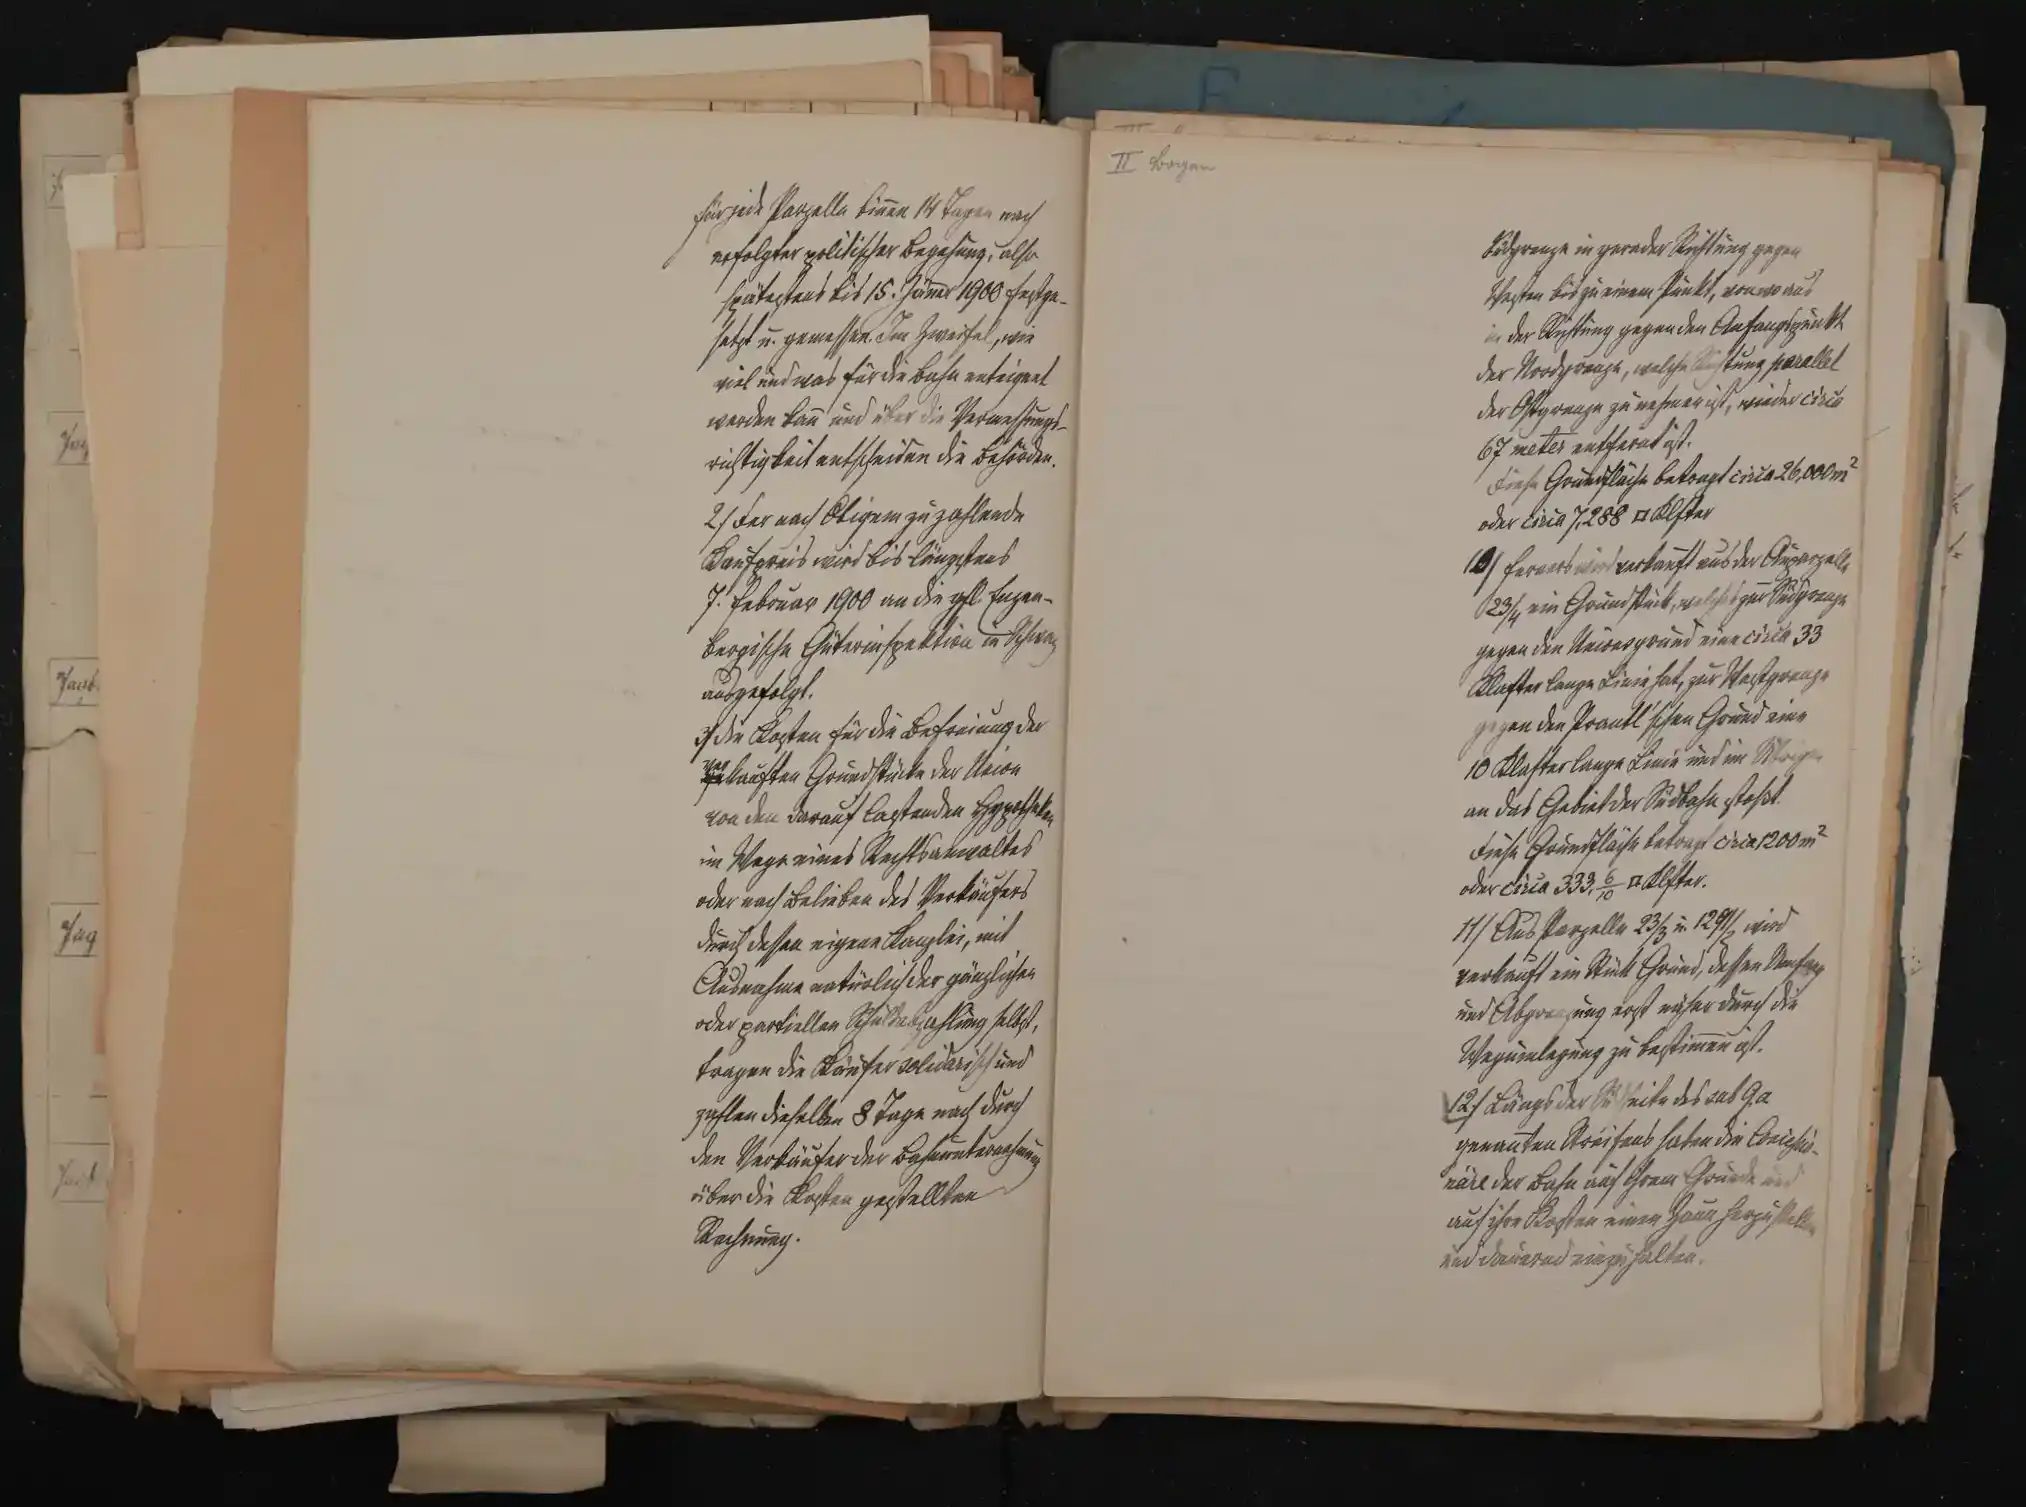 für jede Parzelle binnen 14 Tagen nach
erfolgter politischer Begehung, also
spätestens bis 15. Jänner 1900 festge-
setzt u. gemessen. Im Zweifel, wie
viel und was für die Bahn enteignet
werden kann und über die Vermessungs-
richtigkeit entscheiden die Behörden.
2./ Der nach Obigem zu zahlende
Kaufpreis wird bis längstens
7. Februar 1900 an die gfl. Enzen-
bergische Güterinspektion in Schwaz
ausgefolgt.
3/ die Kosten für die Befreiung der
verkauften Grundstücke der Union
von den darauf lastenden Hypotheken
im Wege eines Rechtsanwaltes
oder nach Belieben des Verkäufers
durch dessen eigene Kanzlei, mit
Ausnahme natürlich der gänzlichen
oder partiellen Schuldabzahlung selbst,
tragen die Käufer solidarisch und
zahlen dieselben 8 Tage nach durch
den Verkäufer der Bahnunternehmung
über die Kosten gestellten
Rechnung.
II Bogen
Südgrenze in gerader Richtung gegen
Westen bis zu einem Punkt, von wo aus
in der Richtung gegen den Anfangspunkt
der Nordgrenze, welche Richtung parallel
der Ostgrenze zu nehmen ist, wieder circa
67 meter entfernt ist.
Diese Grundfläche betragt circa 26,000 m²
oder circa 7,288 □ Klfter
10/ Ferners wird verkauft aus der Auparzelle
23/4 ein Grundstück, welches zur Südgrenze
gegen den Unionsgrund eine circa 33
Klafter lange Linie hat, zur Westgrenze
gegen den Prantl'schen Grund eine
10 Klafter lange Linie und im Übrigen
an das Gebiet der Südbahn stoßt.
Diese Grundfläche betragt circa 1200 m²
oder circa 333, 6/10 □ Klfter.
11/ Aus Parzelle 23/3 u. 1291/1 wird
verkauft ein Stück Grund, dessen Umfang
und Abgrenzung erst näher durch die
Wegumlegung zu bestimmen ist.
12./ Längs der Südseite des sub 9a
genannten Streifens haben die Conzessio-
näre der Bahn auf ihrem Grunde und
auf ihre Kosten einen Zaun herzustellen
und dauernd einzuhalten.